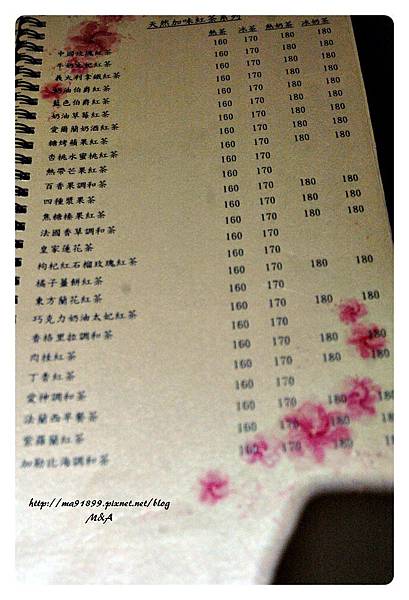 天然加味紅茶系列
熱茶 冰茶 熱奶茶 冰奶茶
中國玫瑰紅茶 160 170 180 180
牛奶太妃紅茶 160 170 180 180
義大利拿鐵紅茶 160 170 180 180
奶油伯爵紅茶 160 170 180 180
藍色伯爵紅茶 160 170 180 180
奶油草莓紅茶 160 170 180 180
愛爾蘭奶酒紅茶 160 170 180 180
糖烤蘋果紅茶 160 170 180 180
杏桃水蜜桃紅茶 160 170
熱帶芒果紅茶 160 170
百香果調和茶 160 170 180 180
四種漿果茶 160 170 180 180
焦糖榛果紅茶 160 170 180 180
法國香草調和茶 160 170
皇家蓮花茶 160 170
枸杞紅石榴玫瑰紅茶 160 170 180 180
橘子薑餅紅茶 160 170
東方蘭花紅茶 160 170 180 180
巧克力奶油太妃紅茶 160 170
香格里拉調和茶 160 170 180 180
肉桂紅茶 160 170 180 180
丁香紅茶 160 170
愛神調和茶 160 170 180 180
法蘭西早餐茶 160 170 180 180
紫羅蘭紅茶 160 170 180
加勒比海調和茶
http://ma91899.pixnet.net/blog
M&A